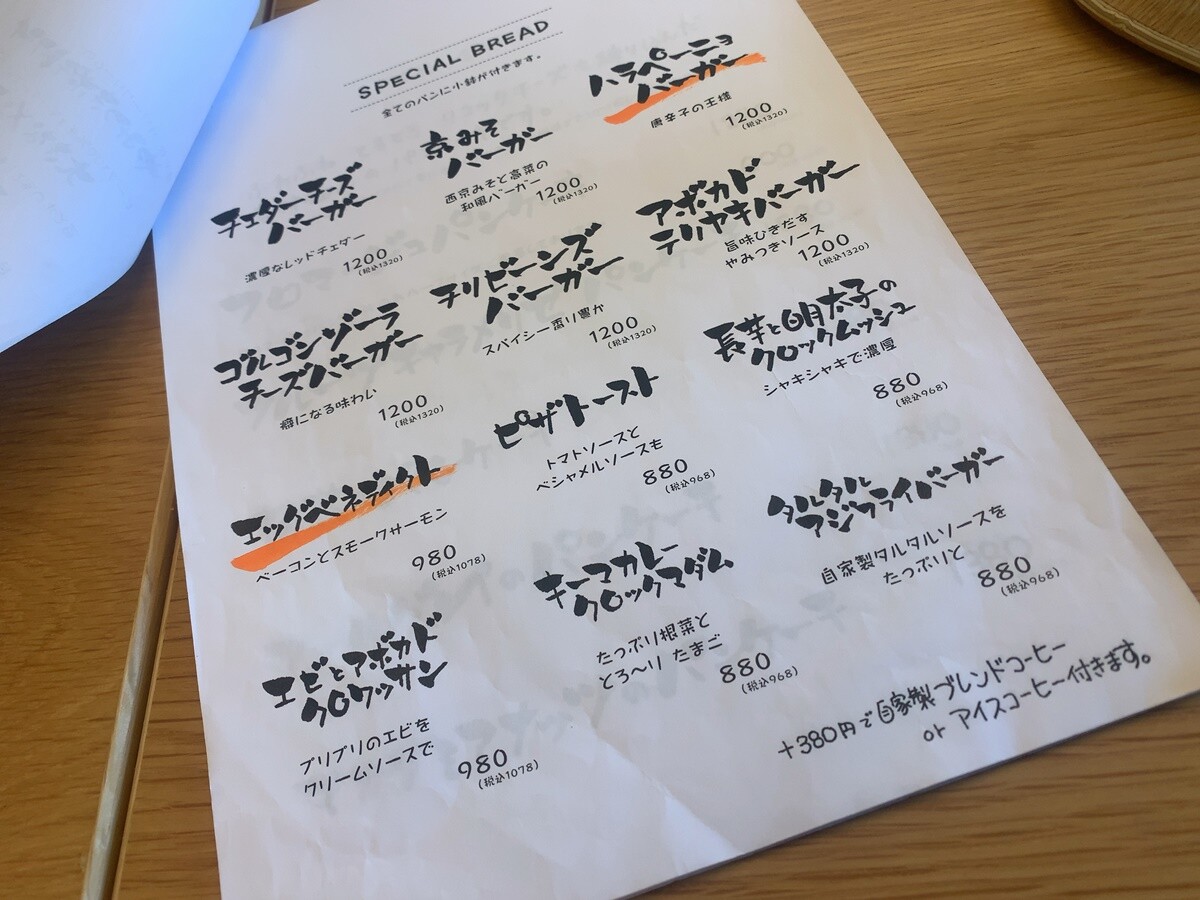 SPECIAL BREAD
全てのパンに小鉢が付きます。
チェダーチーズ
バーガー
濃厚なレッドチェダー
1200
(税込1320)
京みそ
バーガー
西京みそと高菜の
和風バーガー
1200
(税込1320)
ハラペーニョ
バーガー
唐辛子の王様
1200
(税込1320)
ゴルゴンゾーラ
チーズバーガー
癖になる味わい
1200
(税込1320)
チリビーンズ
バーガー
スパイシー香り豊か
1200
(税込1320)
アボカド
テリヤキバーガー
旨味ひきだす
やみつきソース
1200
(税込1320)
エッグベネディクト
ベーコンとスモークサーモン
980
(税込1078)
ピザトースト
トマトソースと
ベシャメルソースも
880
(税込968)
長芋と明太子の
クロックムッシュ
シャキシャキで濃厚
880
(税込968)
エビとアボカド
クロワッサン
プリプリのエビを
クリームソースで
980
(税込1078)
キーマカレー
クロックマダム
たっぷり根菜と
とろ〜り たまご
880
(税込968)
タルタル
アジフライバーガー
自家製タルタルソースを
たっぷりと
880
(税込968)
+380円で自家製ブレンドコーヒー
or アイスコーヒー付きます。